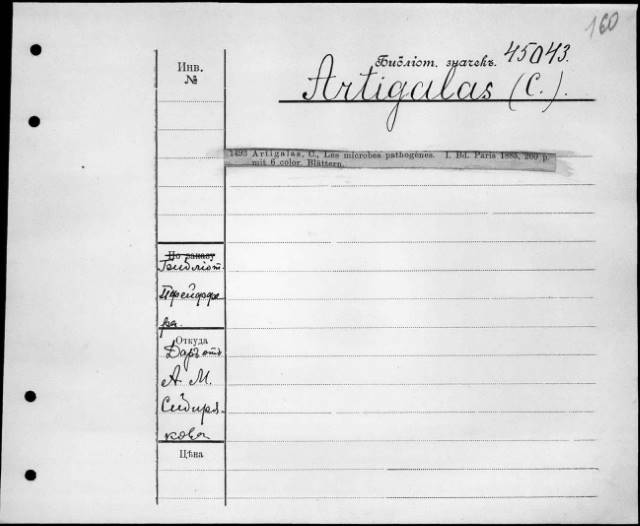 160
Библіот. значекъ. 45043.
Инв.
№
Artigalas (C.).
1493 Artigalas, C., Les microbes pathogènes. I. Bd. Paris 1885, 260 p.
mit 6 color. Blättern.
По заказу
Библіот.
Пфейффе
ра.
Откуда
Даръ отъ
А. М.
Сибиря-
кова
Цѣна